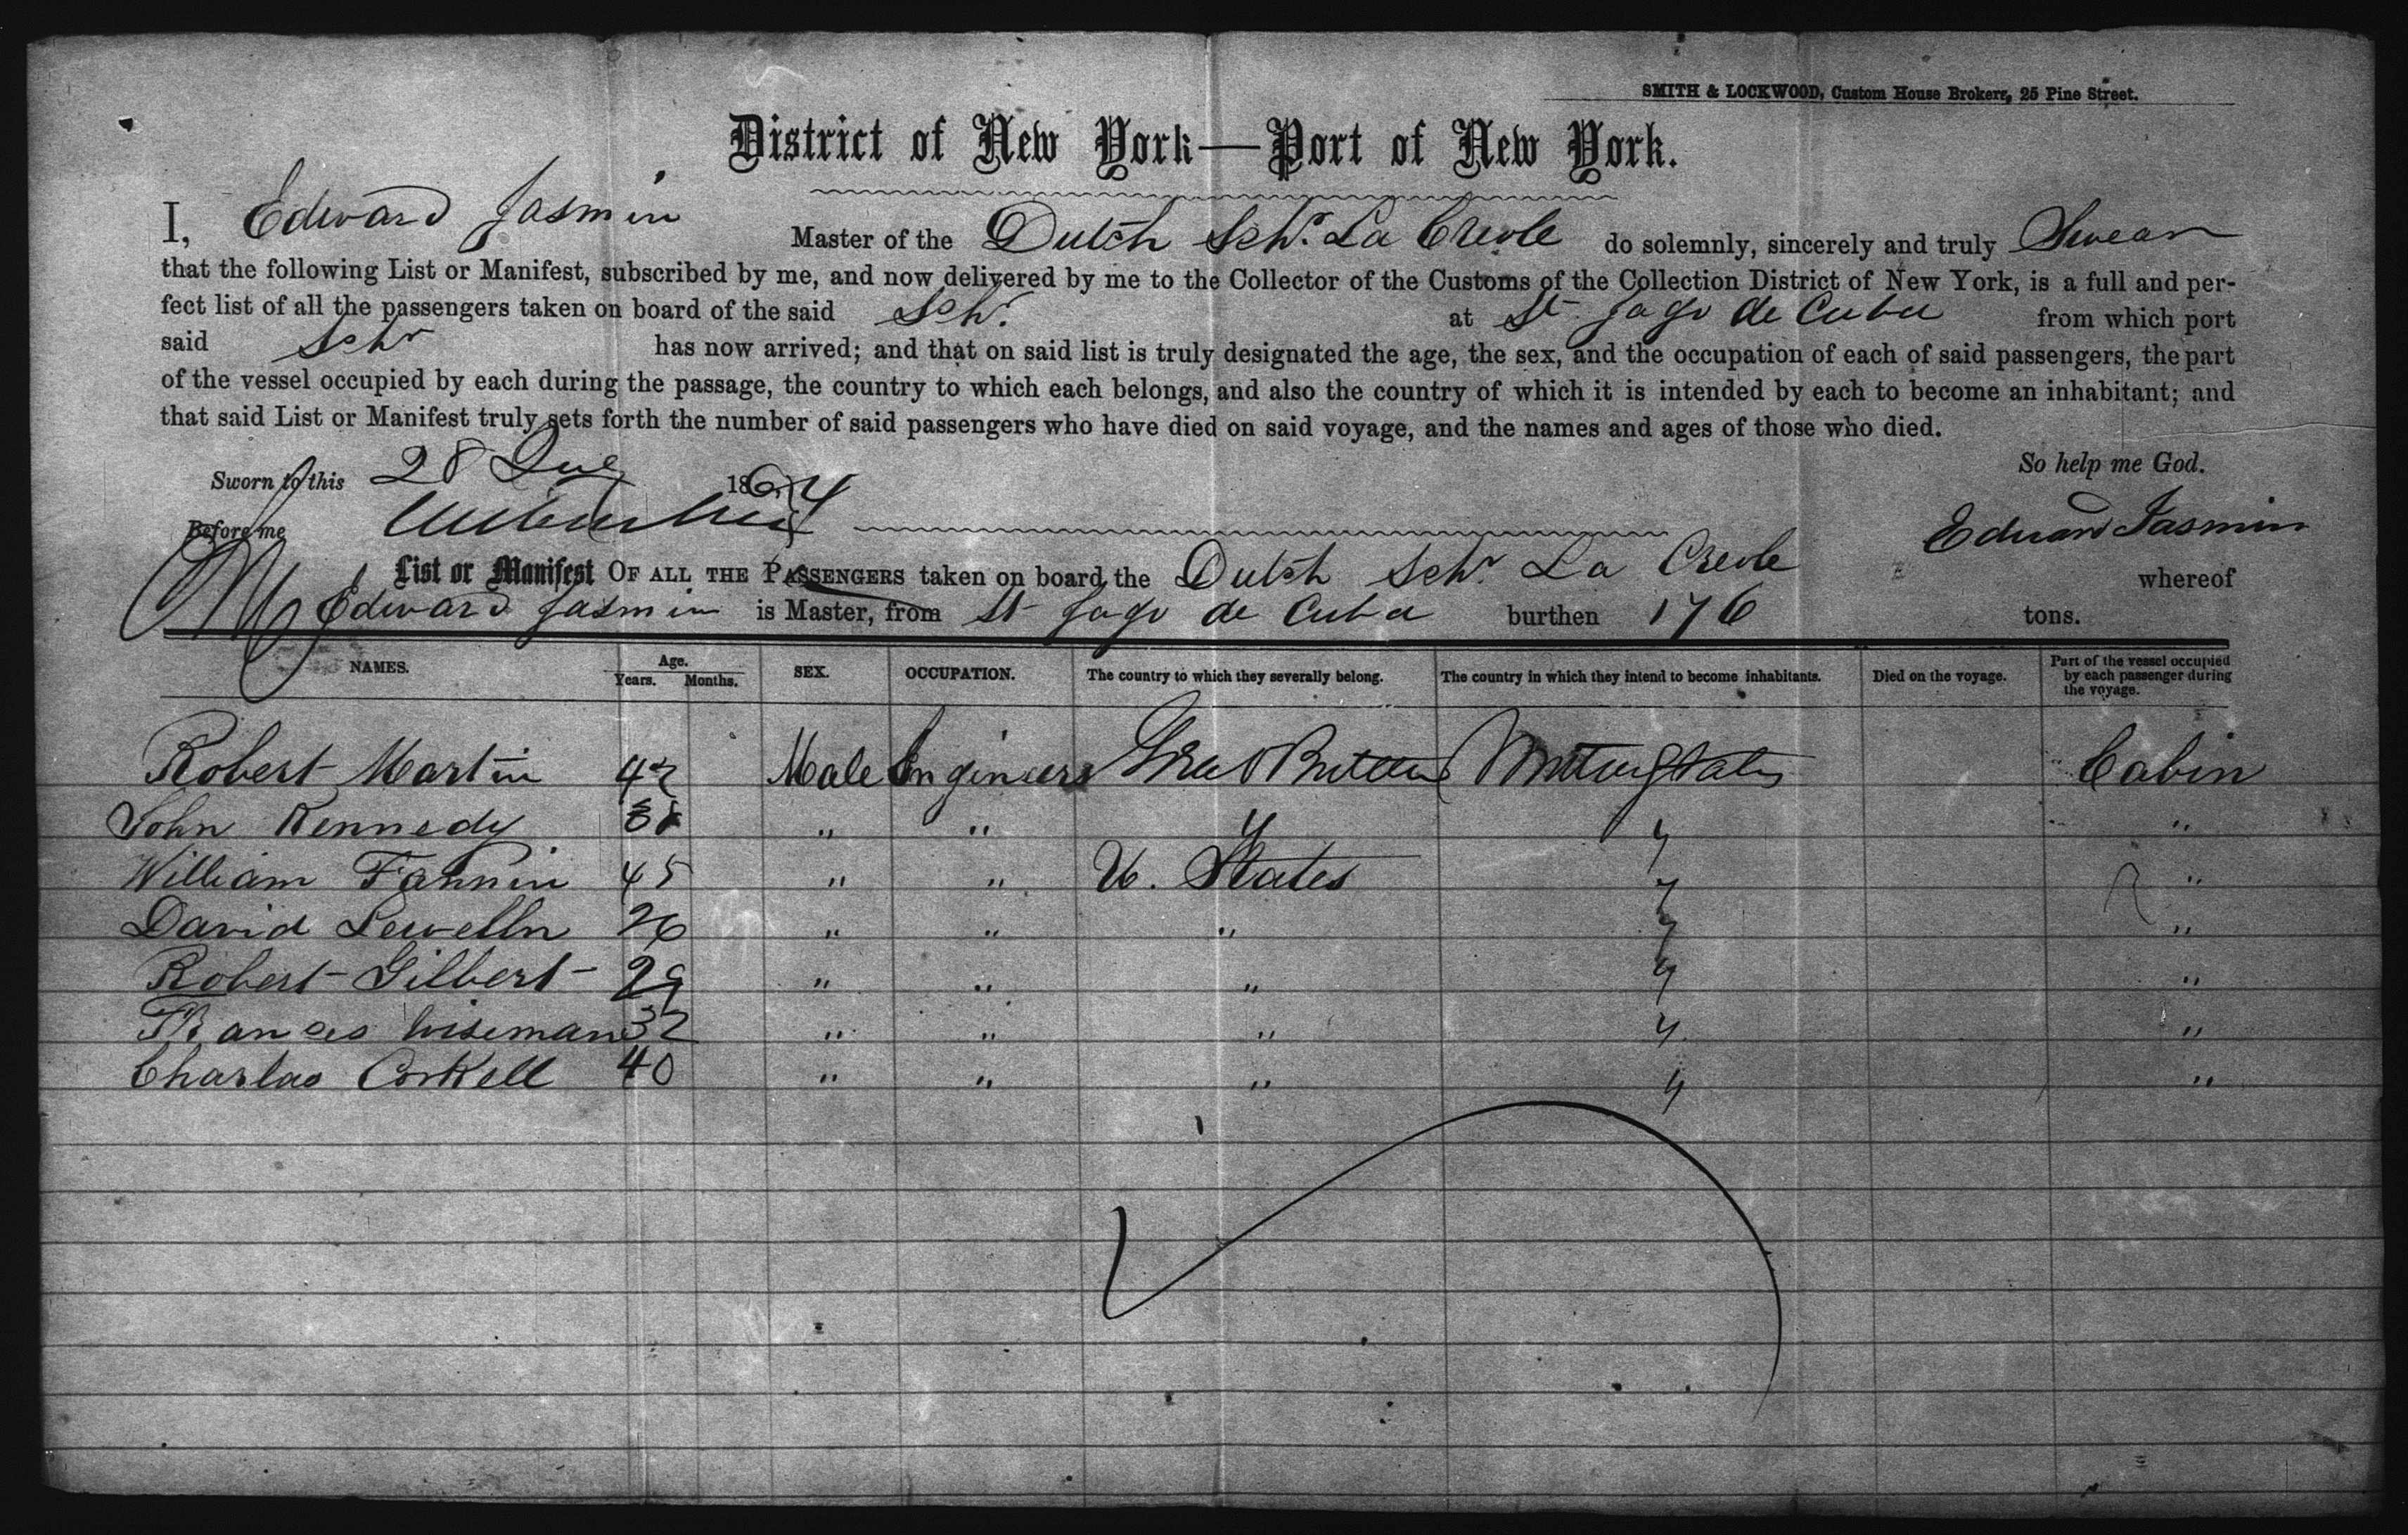 SMITH & LOCKWOOD, Custom House Brokers, 25 Pine Street.
District of New York—Port of New York.
I, Edward Jasmin Master of the Dutch Schr. La Creole do solemnly, sincerely and truly Swear
that the following List or Manifest, subscribed by me, and now delivered by me to the Collector of the Customs of the Collection District of New York, is a full and per-
fect list of all the passengers taken on board of the said Schr. at St. Jago de Cuba from which port
said Schr has now arrived; and that on said list is truly designated the age, the sex, and the occupation of each of said passengers, the part
of the vessel occupied by each during the passage, the country to which each belongs, and also the country of which it is intended by each to become an inhabitant; and
that said List or Manifest truly sets forth the number of said passengers who have died on said voyage, and the names and ages of those who died.
So help me God.
Sworn to this 28 1864
Before me
Edward Jasmin
List or Manifest OF ALL THE PASSENGERS taken on board the Dutch Schr. La Creole whereof
Edward Jasmin is Master, from St Jago de Cuba burthen 176 tons.
NAMES. Age. Years. Months. SEX. OCCUPATION. The country to which they severally belong. The country in which they intend to become inhabitants. Died on the voyage. Part of the vessel occupied by each passenger during the voyage.
Robert Martin 42 Male Engineers Great Britain United States Cabin
John Kennedy 38 " " " " "
William Fannin 45 " " U. States " "
David Lewelln 26 " " " " "
Robert Gilbert 29 " " " " "
Frances Wiseman 32 " " " " "
Charlas Corkell 40 " " " " "